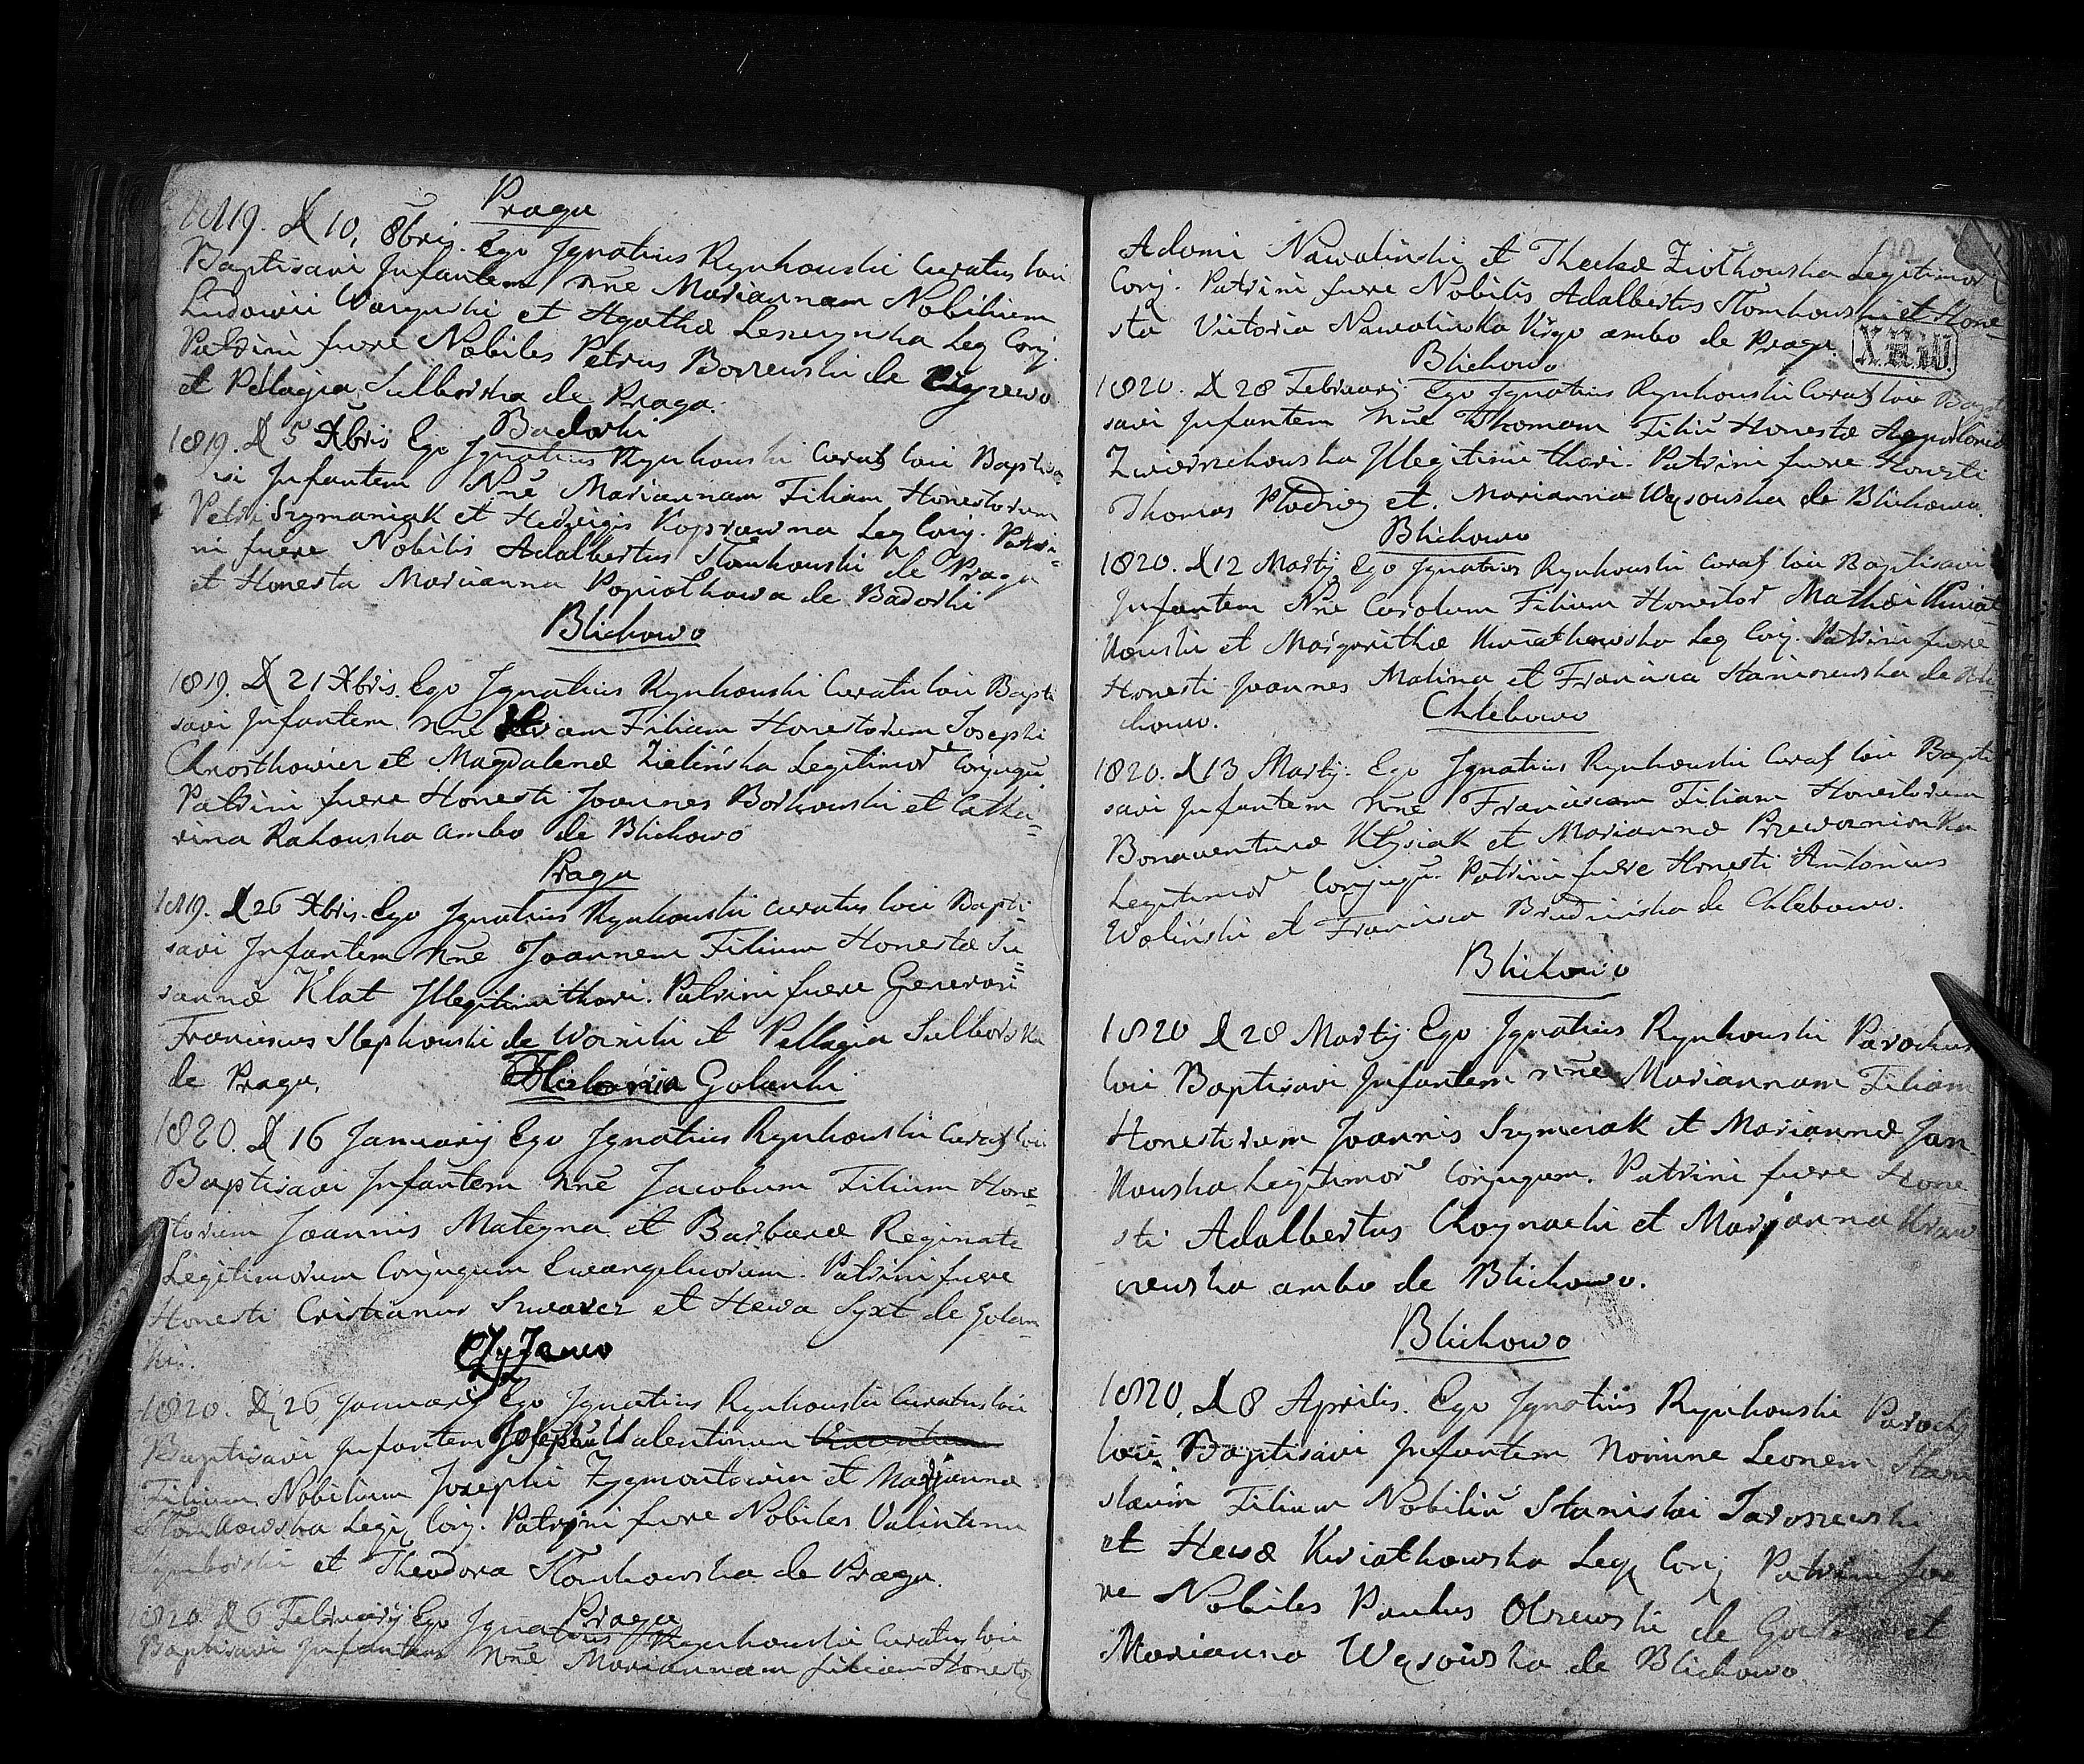 Praga
1819. D 10, 8bris. Ego Ignatius Rynkowski Curatus loci
Baptisavi Infantem Nne Mariannam Nobilium
Ludovici et Agathæ Leszczynska Leg Conj.
Patrini fuere Nobiles Petrus Borzewski de
et Pelagia Sulborska de Praga.
Badorki
1819. D 5 Xbris Ego Ignatius Rynkowski Curat loci Baptisa
vi Infantem Nne Mariannam Filiam Honestorum
Petri Szymaniak et Hedvigis Koprowna Leg Conj. Patri=
ni fuere Nobilis Adalbertus Słomkowski de Praga
et Honesta Marianna Popiołkowa de Badorki
Blichowo
1819. D 21 Xbris. Ego Ignatius Rynkowski Curatu loci Bapti
savi Infantem Nne Filiam Honestorum Josephi
Chrostkowicz et Magdalenæ Zielińska Legitimor Conjugu.
Patrini fuere Honesti Joannes Borkowski et Catha=
rina Rakowska ambo de Blichowo
Praga
1819. D 26 Xbris. Ego Ignatius Rynkowski Curatus loci Bapti=
savi Infantem Nne Joannem Filium Honestæ Su=
sannæ Klat Illegitimi thori. Patrini fuere Generosi
Franciscus Slepkowski de et Pellagia Sulborska
de Praga.
Golanki
1820. D 16 Januarij Ego Ignatius Rynkowski Curat loci
Baptisavi Infantem Nne Jacobum Filium Hone
storum Joannis Mategna et Barbaræ Reginate
Legitimorum Conjugum Ewangelicorum. Patrini fuere
Honesti Cristianus Szwarcz et Hewa Syxt de Golan
ki.
1820. D 26 Januarij Ego Ignatius Rynkowski Curatus loci
Baptisavi Infantem Josephu Valentinum
Filium Nobilium Josephi Zygmontowicz et Marianna
Słomkowska Legi Conj. Patrini fuere Nobiles Valentinu
et Theodora Słomkowska de Praga.
Praga
1820 D 6 Februarij Ego Ignatius Rynkowski Curatus loci
Baptisavi Infantem Nne Mariannam filiam Honestor
Adami Nawalinski et Theclæ Ziołkowska Legitimor
Conj. Patrini fuere Nobilis Adalbertus Słomkowski et Hone=
sta Victoria Nawalinska Virgo ambo de Praga.
Blichowo
1820. D 28 Februarij Ego Ignatius Rynkowski Curat loci Bapti
savi Infantem Nne Thomam Filiu Honestæ
Zwierzchowska Illegitimi thori. Patrini fuere Honesti
Thomas et Marianna Wąsowska de Blichowo.
Blichowo
1820. D 12 Martij Ego Ignatius Rynkowski Curat loci Baptisavi
Infantem Nne Carolum Filium Honestor Mathæi Kwiat
kowski et Margarithæ Kwiatkowska Leg Conj. Patrini fuere
Honesti Joannes Malina et Francisca Staniszewska de Bli=
chowo.
Chlebowo
1820. D 13 Martij. Ego Ignatius Rynkowski Curat loci Bapti
savi Infantem Nne Franciscam Filiam Honestorum
Bonaventuræ Kłysiak et Mariannæ
Legitimor Conjugu. Patrini fuere Honesti Antonius
Woliński et Francisca Brudzińska de Chlebowo.
Blichowo
1820 D 28 Martij Ego Ignatius Rynkowski Parochus
loci Baptisavi Infantem Nne Mariannam Filiam
Honestorum Joannis Szymczak et Mariannæ Jan
kowska Legitimor Conjugum. Patrini fuere Hone
sti Adalbertus Choynacki et Marjanna Kraw
czewska ambo de Blichowo.
Blichowo
1820. D 8 Aprilis. Ego Ignatius Rynkowski Paroch
loci Baptisavi Infantem Nomine Leonem Stani
slaum Filium Nobiliu Stanislai Jaroszewski
et Hewæ Kwiatkowska Leg Conj Patrini fue
re Nobiles Paulus Olszewski de et
Marianna Wąsowska de Blichowo